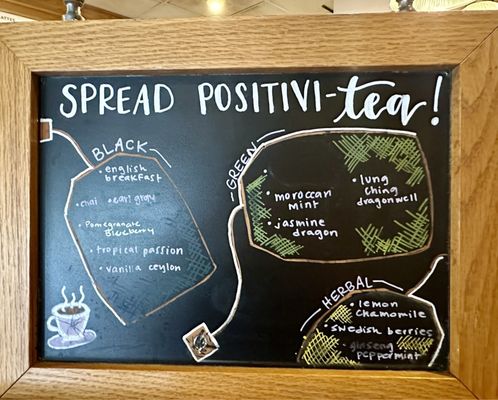 SPREAD POSITIVI-tea!
BLACK
• english
breakfast
• chai • earl grey
• Pomegranate
Blackberry
• tropical passion
• vanilla ceylon
GREEN
• moroccan
mint
• jasmine
dragon
• lung
ching
dragonwell
HERBAL
• lemon
chamomile
• swedish berries
• ginseng
peppermint